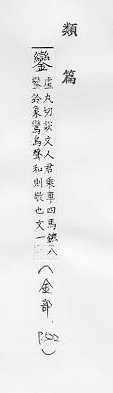 類篇
鑾
盧丸切説文人君乘車四馬鑣八
鑾鈴象鸞鳥聲和則敬也文一
(金部,